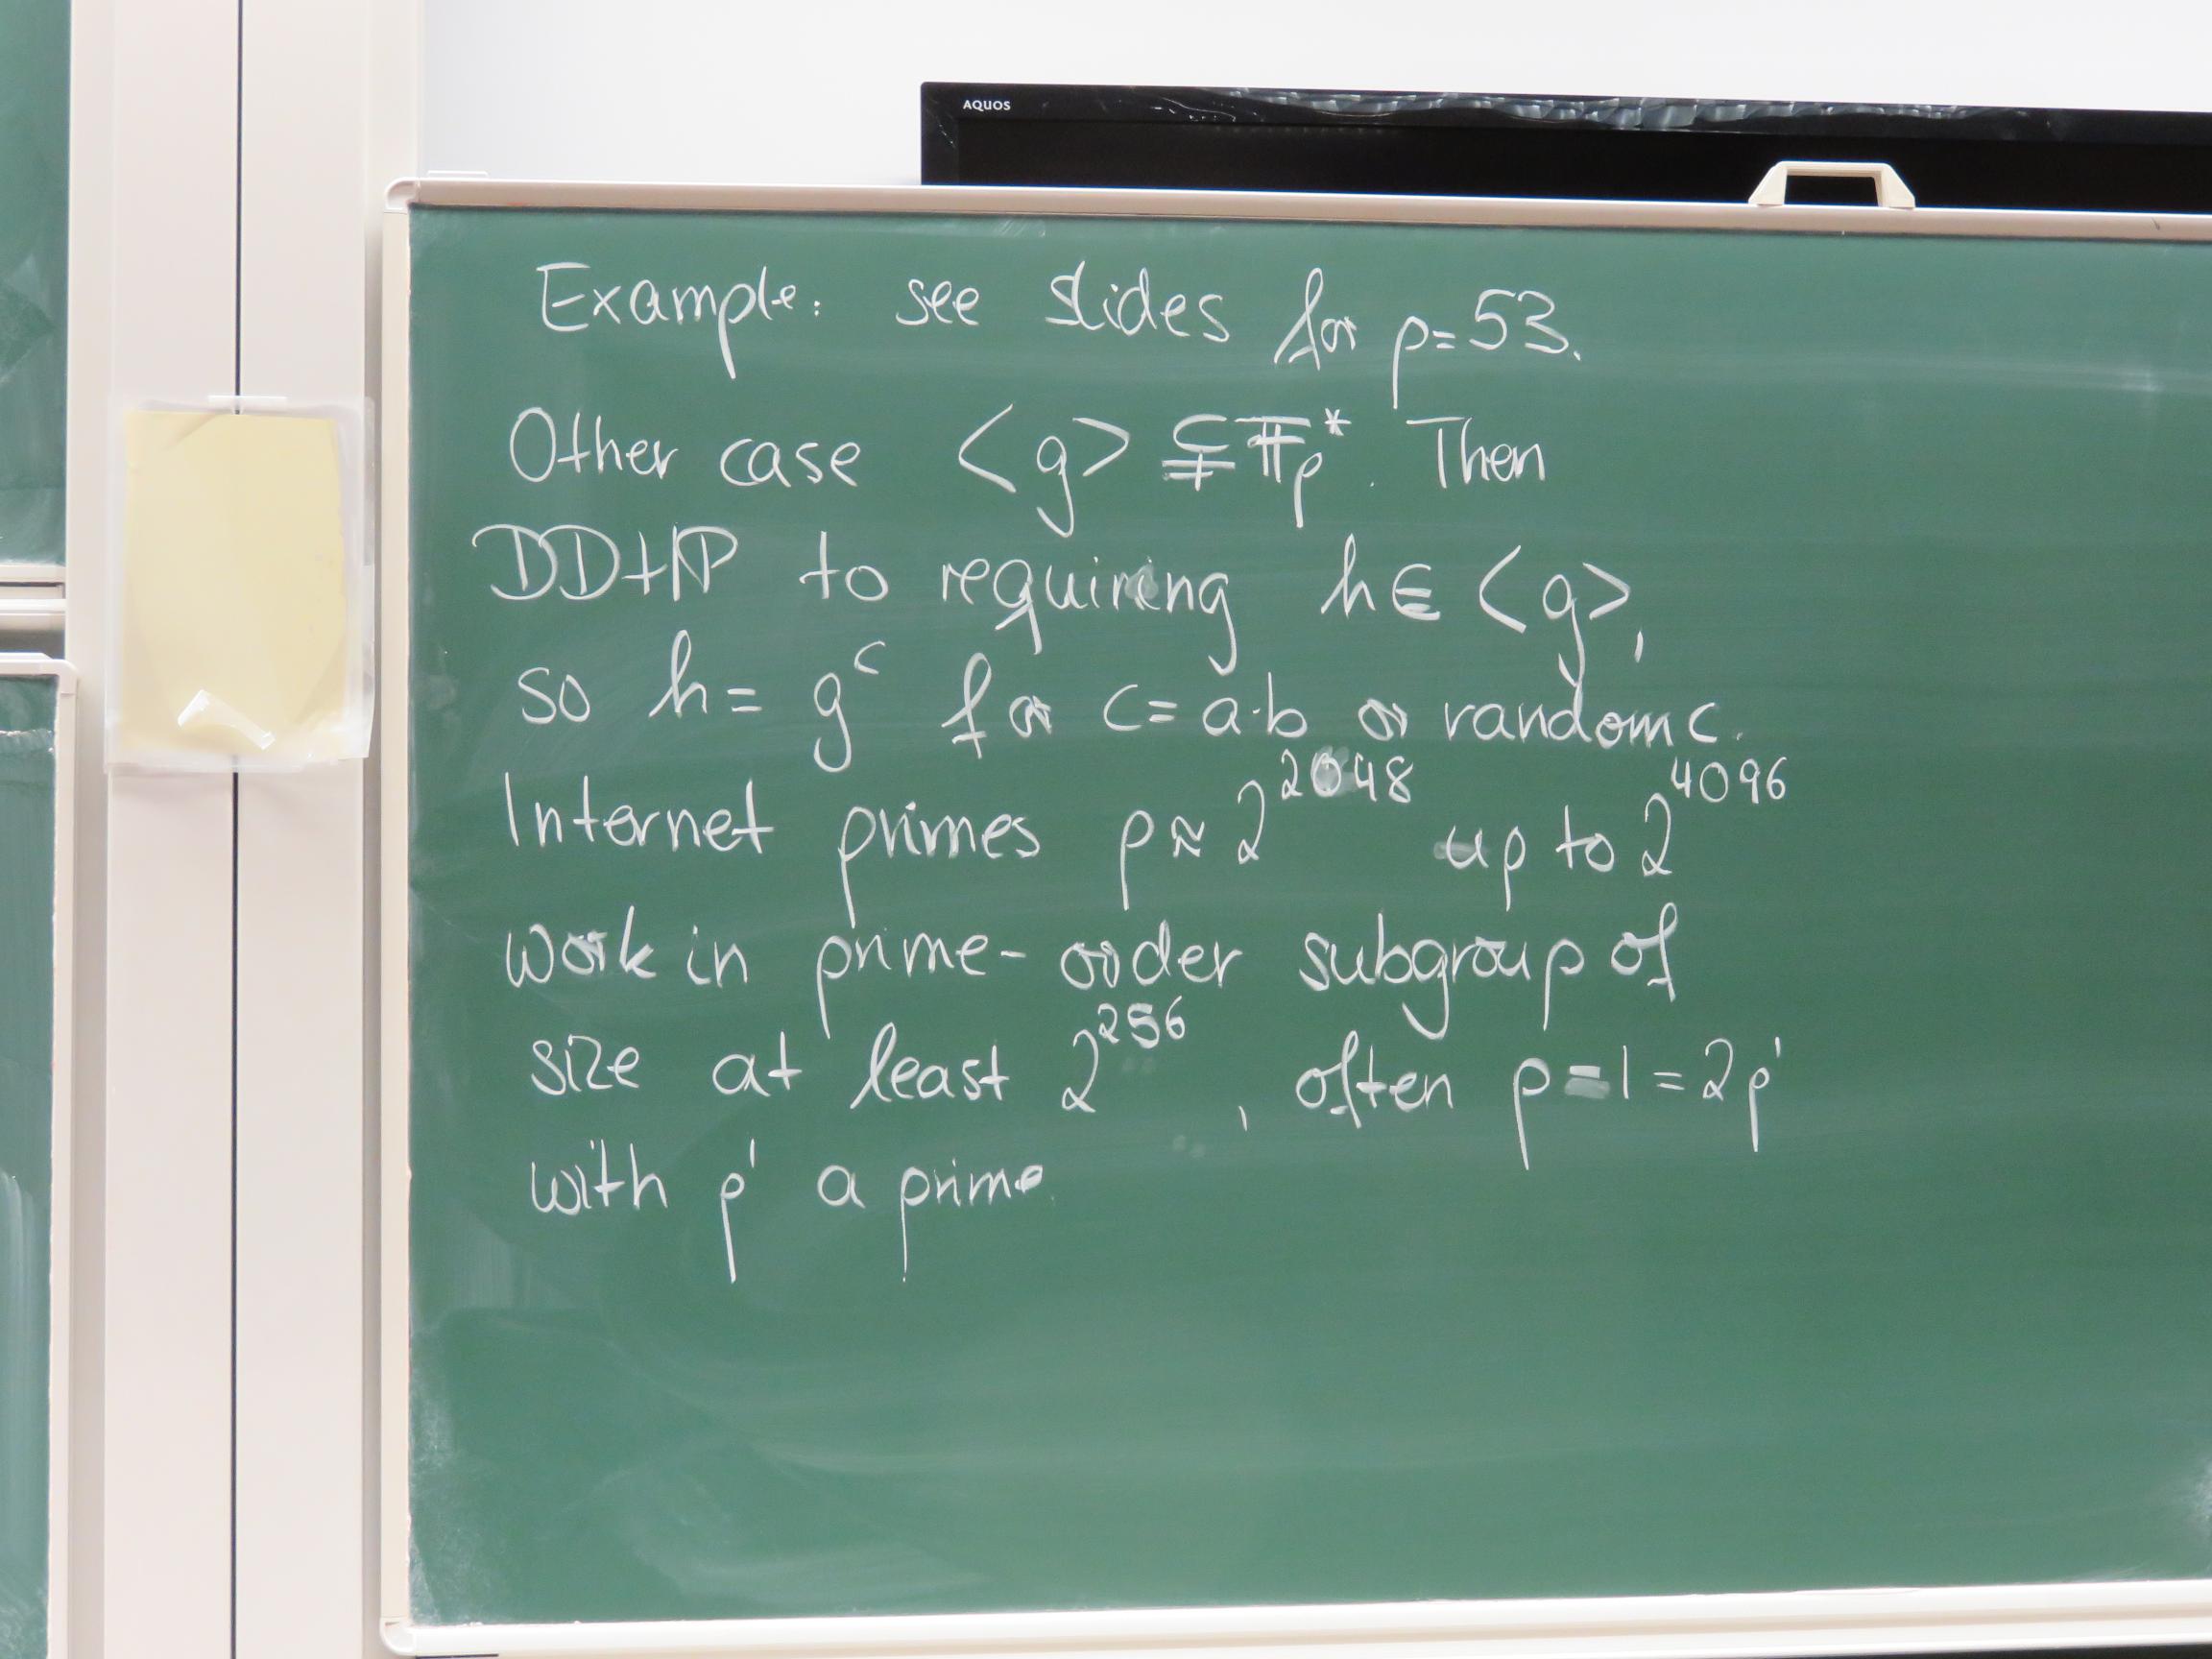 AQUOS
Example: see slides for p=53.
Other case <g> ⊊ 𝔽ₚ*. Then
DDHP to requiring h∈ <g>,
so h= g^c for c= a·b or random c.
Internet primes p≈ 2^2048 up to 2^4096
work in prime-order subgroup of
size at least 2^256, often p-1=2p'
with p' a prime.